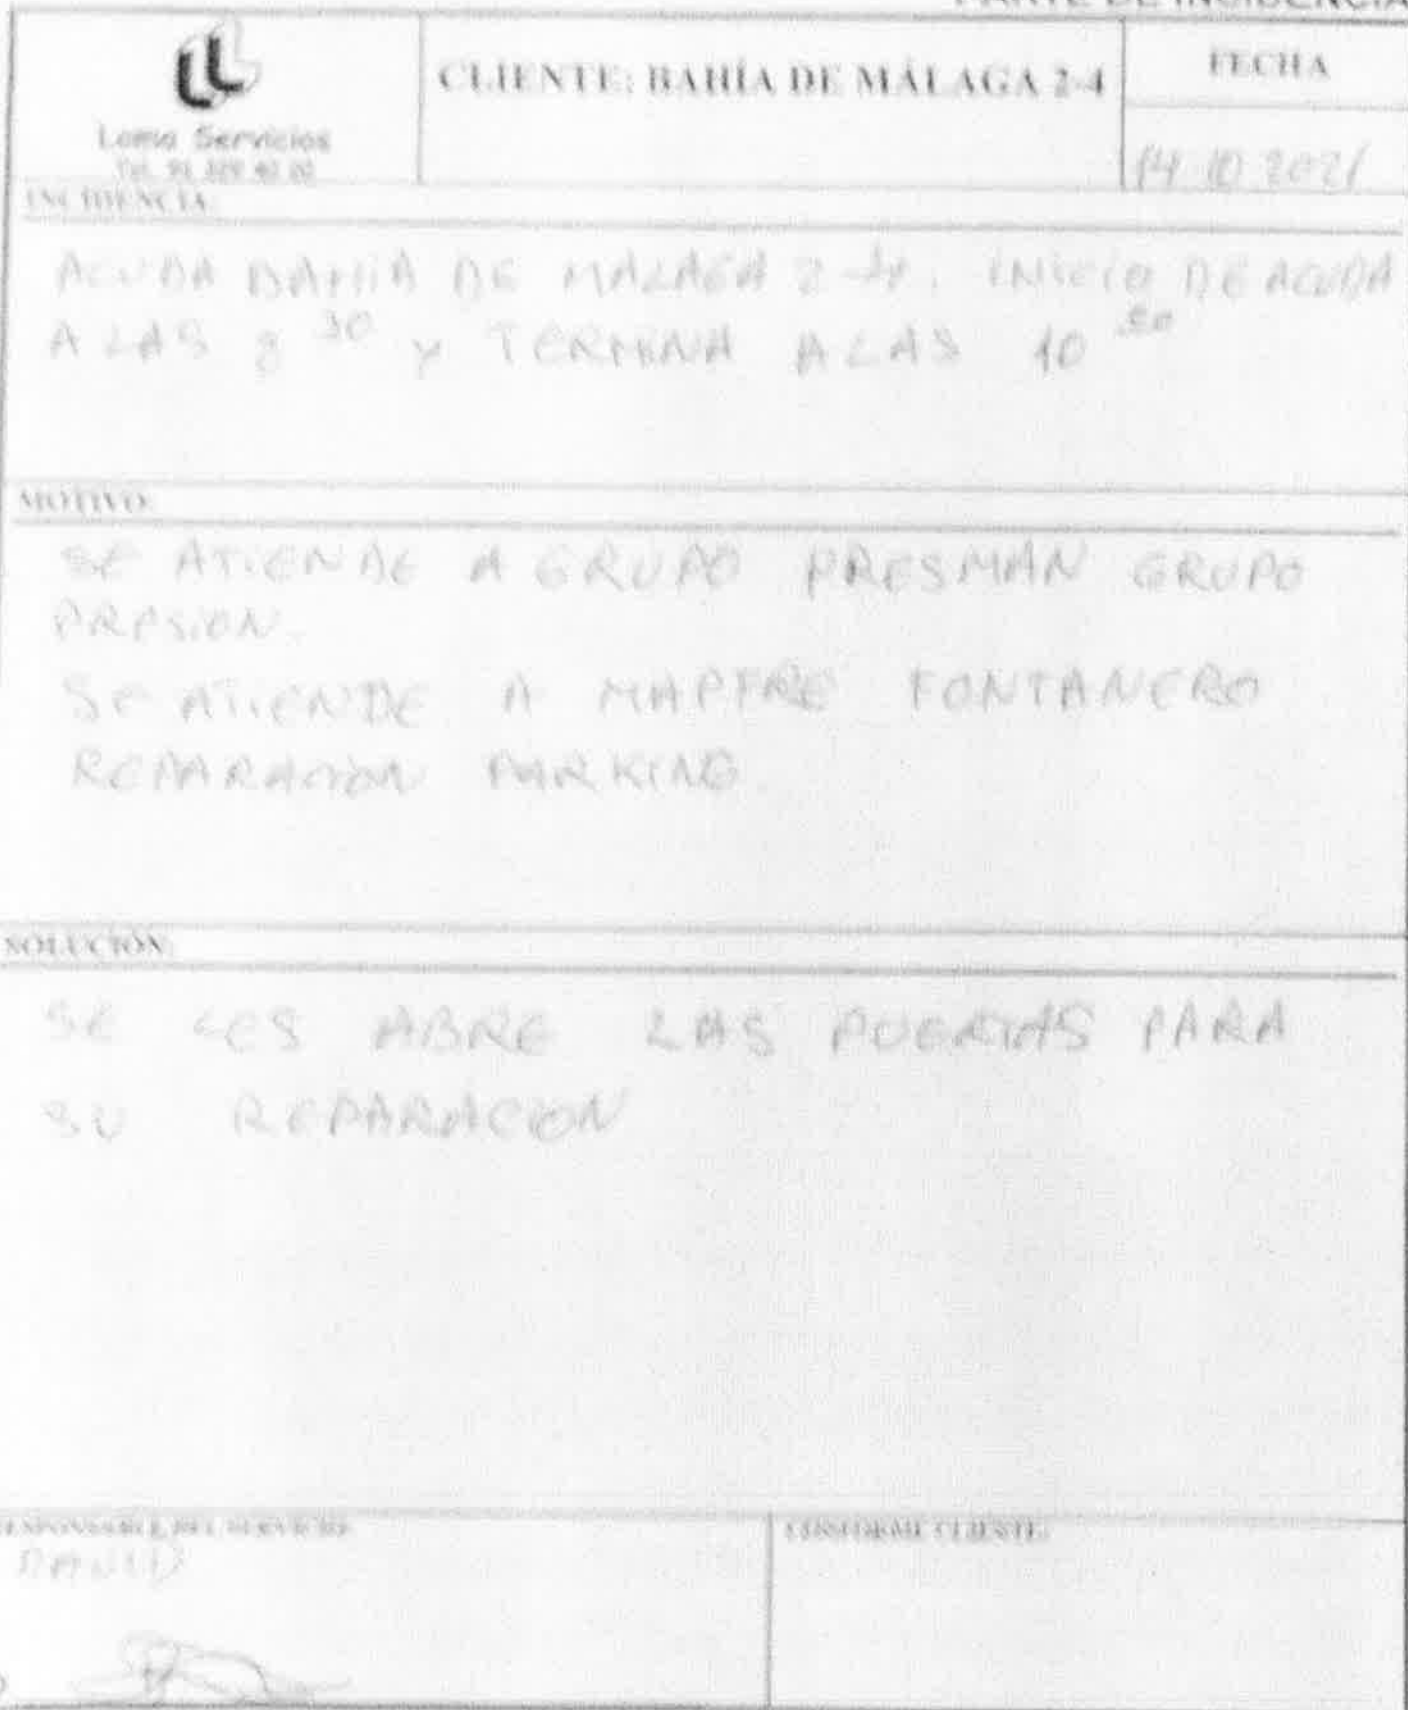 PARTE DE INCIDENCIA
Lomo Servicios
CLIENTE: BAHÍA DE MÁLAGA 2-4
FECHA
14 10 2021
INCIDENCIA:
BAHIA DE MALAGA 2-4. INICIO DE
A LAS 8 30 Y TERMINA A LAS 10
MOTIVO:
SE ATIENDE A GRUPO PRESMAN GRUPO
PRESION.
SE ATIENDE A MAPFRE FONTANERO
REPARACION PARKING
SOLUCIÓN:
SE LES ABRE LAS PUERTAS PARA
SU REPARACION
RESPONSABLE DEL SERVICIO:
DAVID
CONFORME CLIENTE: